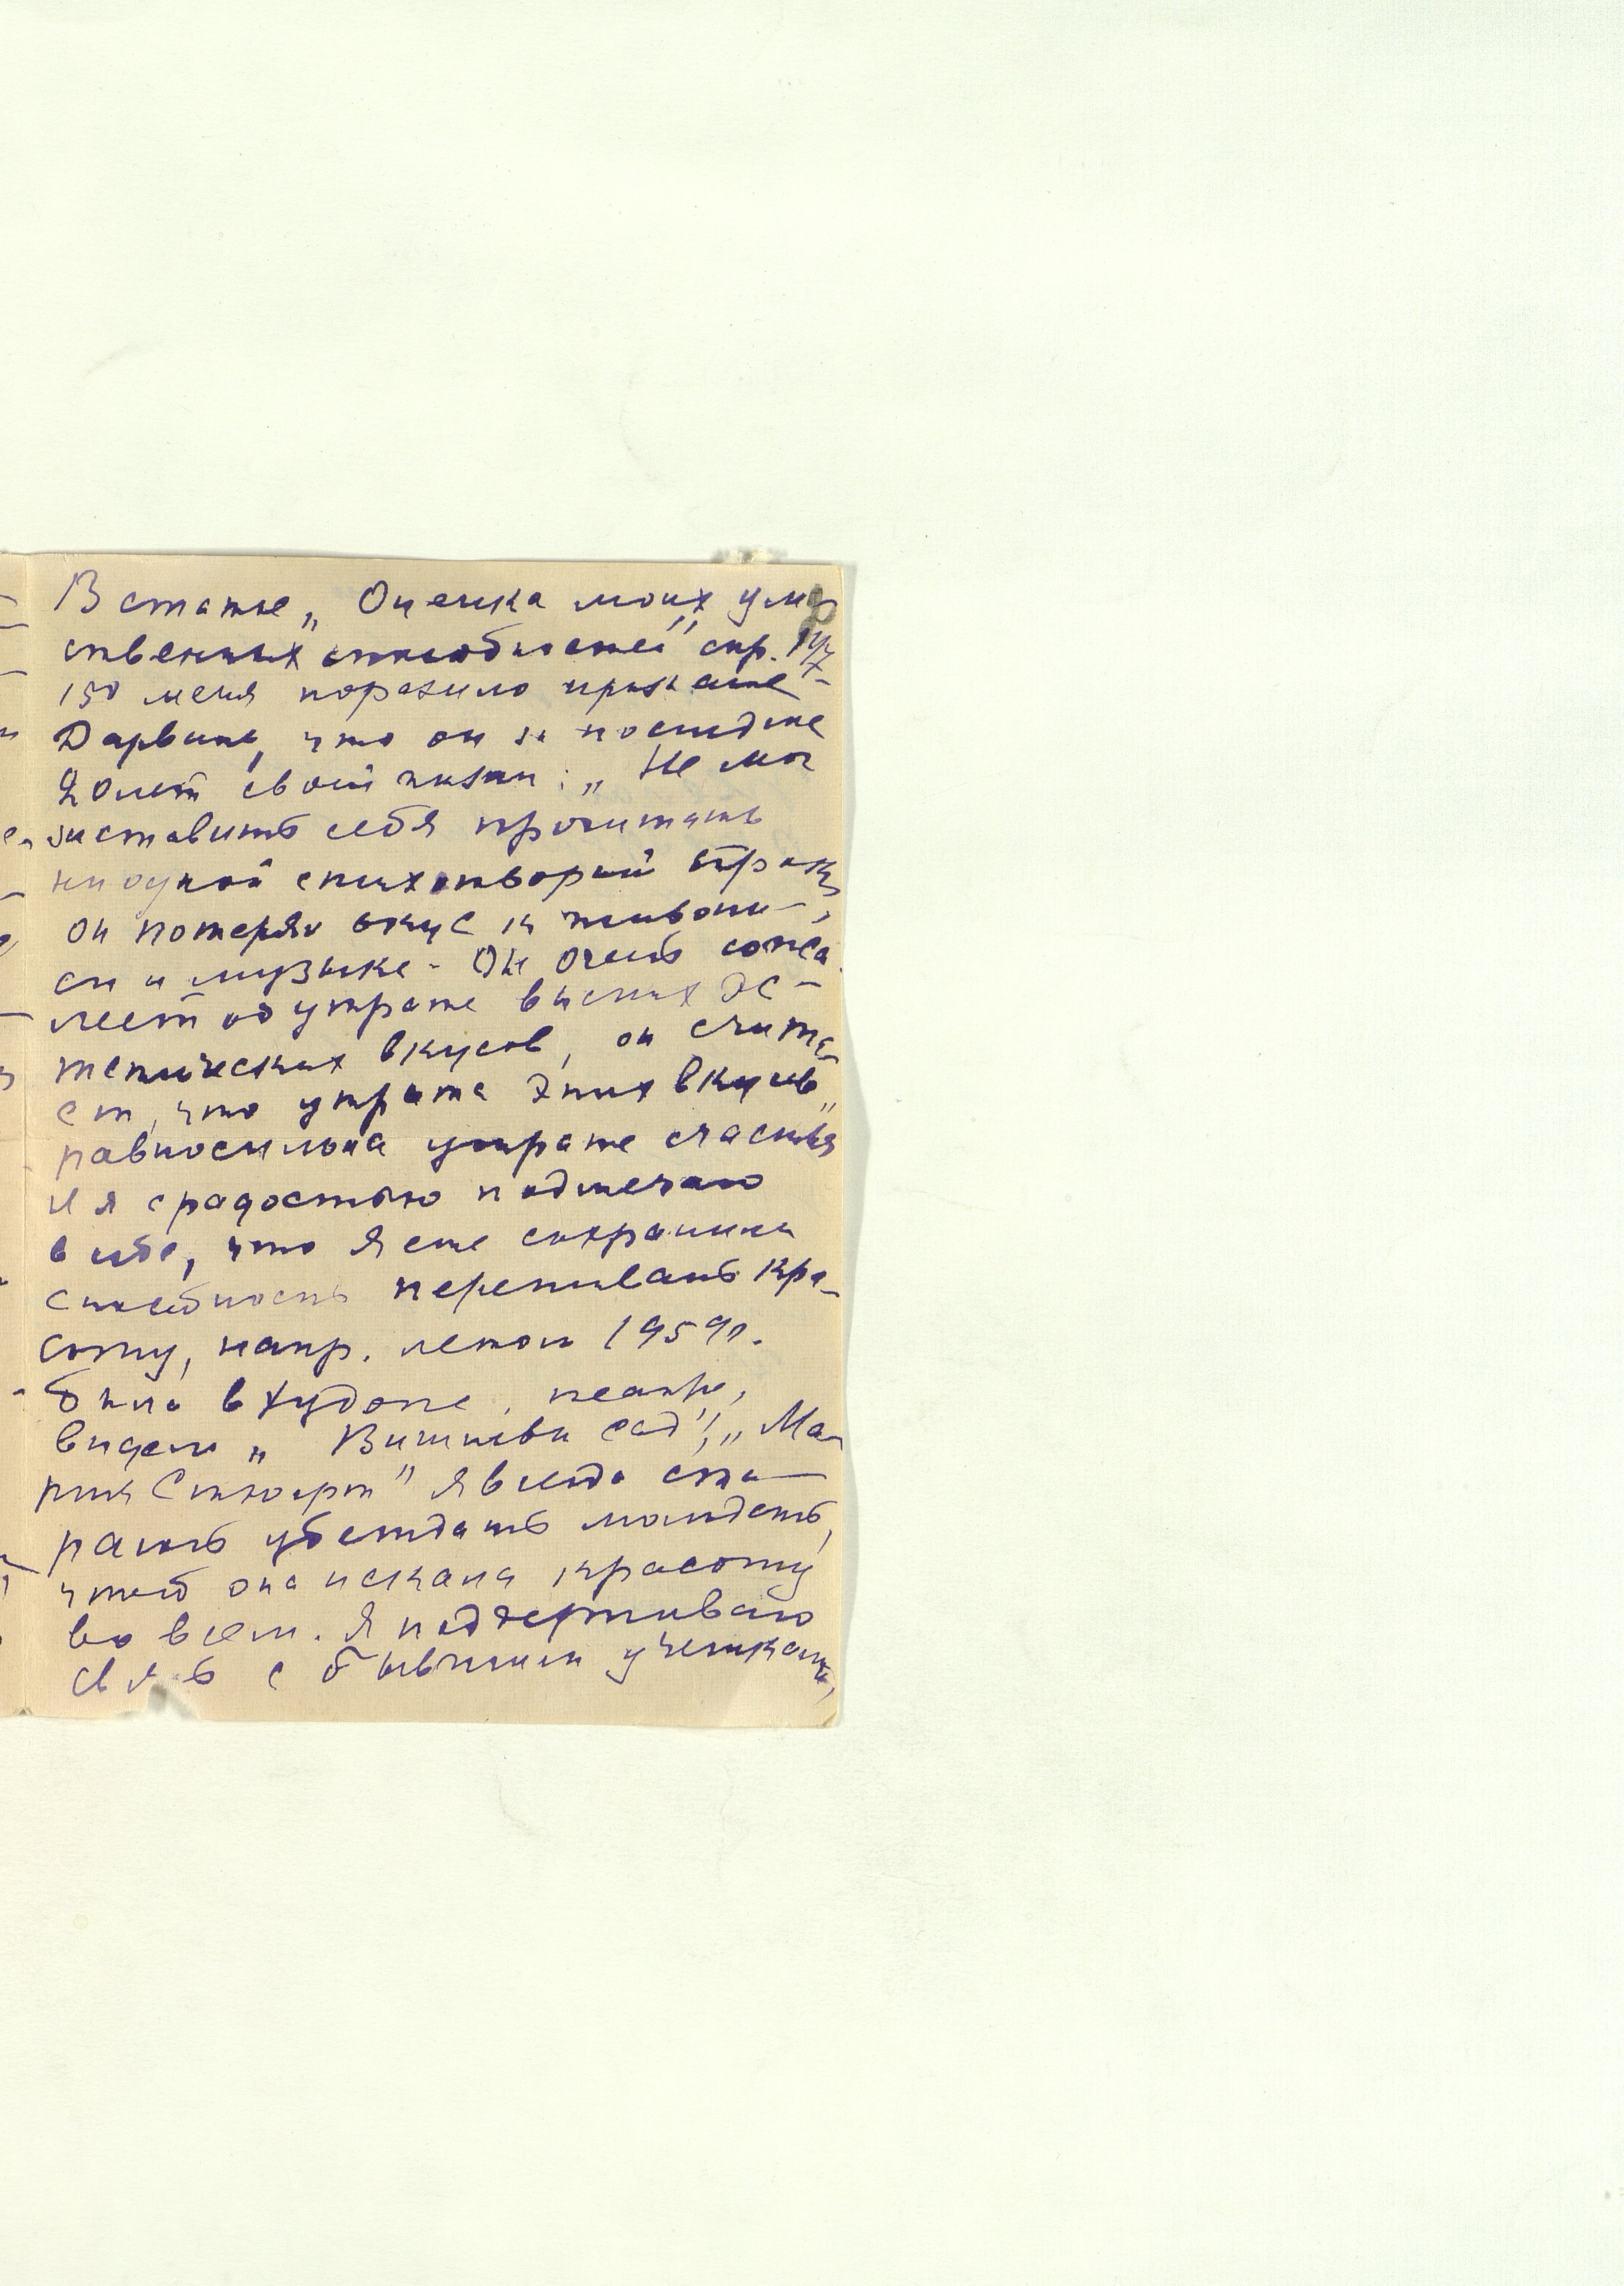 В статье „Оценка моих ум-
ственных способностей" стр. 147-
150 меня поразило признание
Дарвина, что он за последние
20 лет своей жизни: „Не мог
заставить себя прочитать
ни одной стихотворной строки,
он потерял вкус к живопи-
си и музыке - Он очень сожа-
леет об утрате высших эс-
тетических вкусов, он счита-
ет, что утрата этих вкусов „
равносильна утрате счастья
И я с радостью подмечаю
в себе, что я еще сохранила
способность переживать кра-
соту, напр. летом 1959 г.
была в Худож. театре,
видела „Вишневый сад", „Ма-
рия Стюарт" Я всегда ста-
раюсь убеждать молодежь,
чтоб она искала красоту
во всем. Я поддерживаю
связь с бывшими учениками,